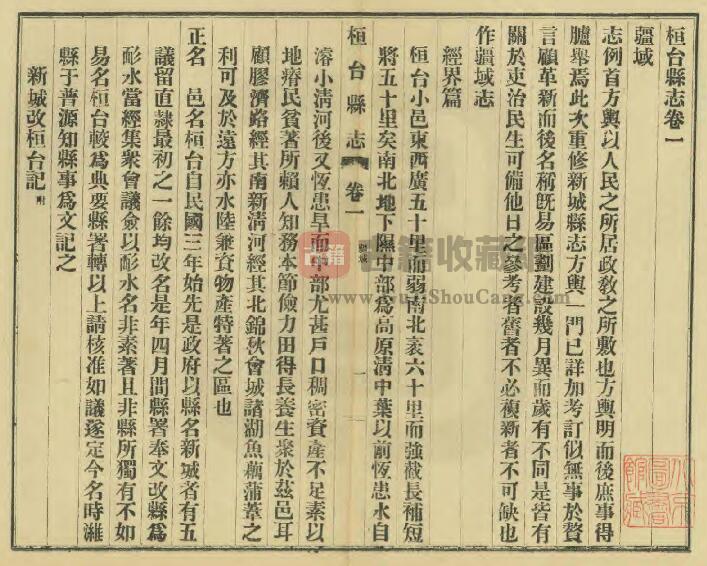 桓台縣志卷一
疆域
志例首方輿以人民之所居政敎之所敷也方輿明而後庶事得
臚舉焉此次重修新城縣志方輿一門已詳加考訂似無事於贅
言顧革新而後名稱旣易區劃建設幾月異而歲有不同是皆有
關於吏治民生可備他日之參考者舊者不必複新者不可缺也
作疆域志
經界篇
桓台小邑東西廣五十里而弱南北袤六十里而強截長補短
將五十里矣南北地下隰中部爲高原淸中葉以前恆患水自
桓台縣志 卷一 疆域 一
濬小淸河後又恆患旱而中部尤甚戶口稠密資產不足素以
地瘠民貧著所賴人知務本節儉力田得長養生聚於茲邑耳
顧膠濟路經其南新淸河經其北錦秋會城諸湖魚藕蒲葦之
利可及於遠方亦水陸兼資物產特著之區也
正名 邑名桓台自民國三年始先是政府以縣名新城者有五
議留直隸最初之一餘均改名是年四月間縣署奉文改縣爲
耏水當經集衆會議僉以耏水名非素著且非縣所獨有不如
易名桓台較爲典要縣署轉以上請核准如議遂定今名時濰
縣于普源知縣事爲文記之
新城改桓台記 附
古籍收藏网
www.GuJiShouCang.com